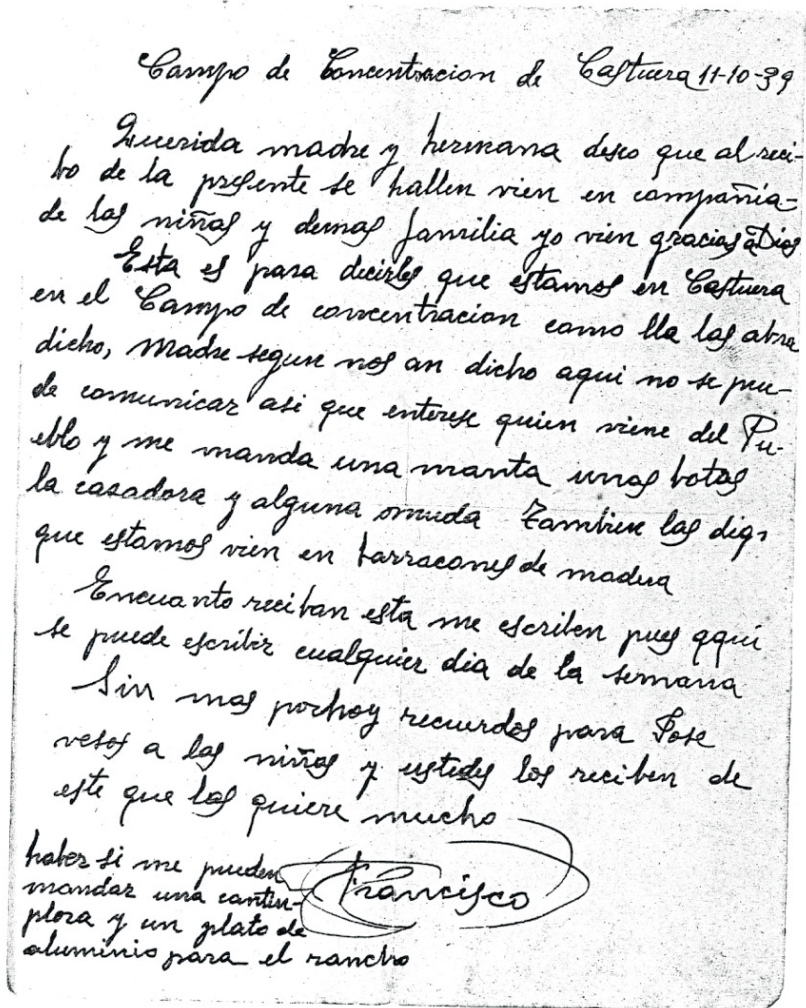 Campo de Concentracion de Castuera 11-10-39
Querida madre y hermana deseo que al reci-
bo de la presente se hallen vien en compañia-
de las niñas y demas familia yo vien gracias a Dios
Esta es para decirles que estamos en Castuera
en el Campo de concentracion como lla las abra
dicho, Madre segun nos an dicho aqui no se pue-
de comunicar asi que enterese quien viene del Pu-
eblo y me manda una manta unas botas
la casadora y alguna muda Tambien las digo
que estamos vien en barracones de madera
Encuanto reciban esta me escriben pues aqui
se puede escribir cualquier dia de la semana
Sin mas porhoy recuerdos para Jose
vesos a las niñas y ustedes los reciben de
este que las quiere mucho
Francisco
haber si me pueden
mandar una cantin-
plora y un plato de
aluminio para el rancho